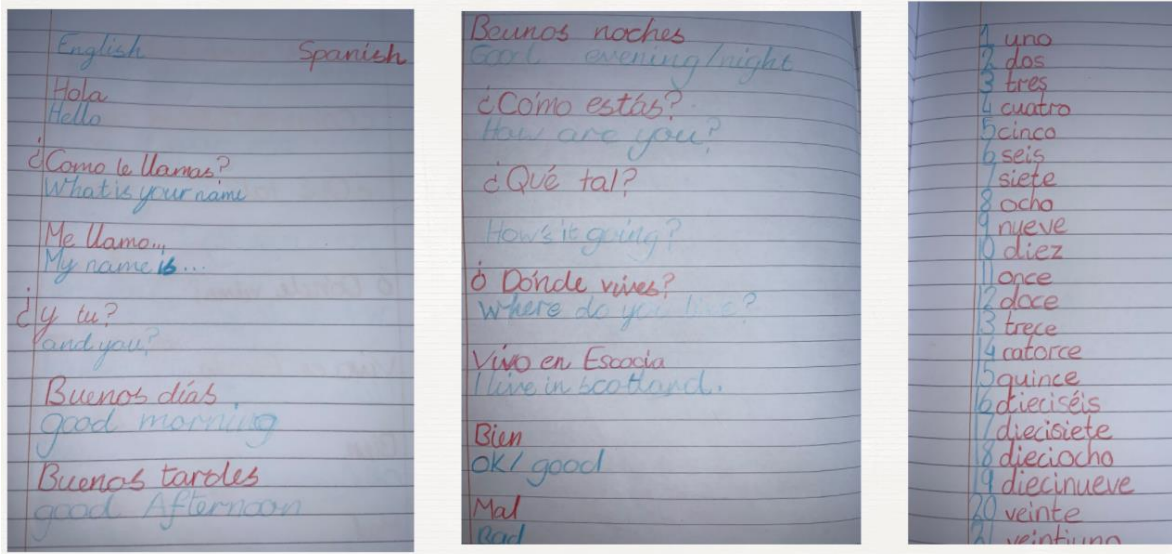 English Spanish
Hola
Hello
¿Como te llamas?
What is your name
Me llamo...
My name is...
¿y tu?
and you?
Buenos días
good morning
Buenos tardes
good Afternoon
Beunos noches
Good evening/night
¿Cómo estás?
How are you?
¿Qué tal?
How's it going?
ó Dónde vives?
Where do you live?
Vivo en Escocia
I live in Scotland.
Bien
OK/ good
Mal
Bad
1 uno
2 dos
3 tres
4 cuatro
5 cinco
6 seis
7 siete
8 ocho
9 nueve
10 diez
11 once
12 doce
13 trece
14 catorce
15 quince
16 dieciséis
17 diecisiete
18 dieciocho
19 diecinueve
20 veinte
21 veintiuno